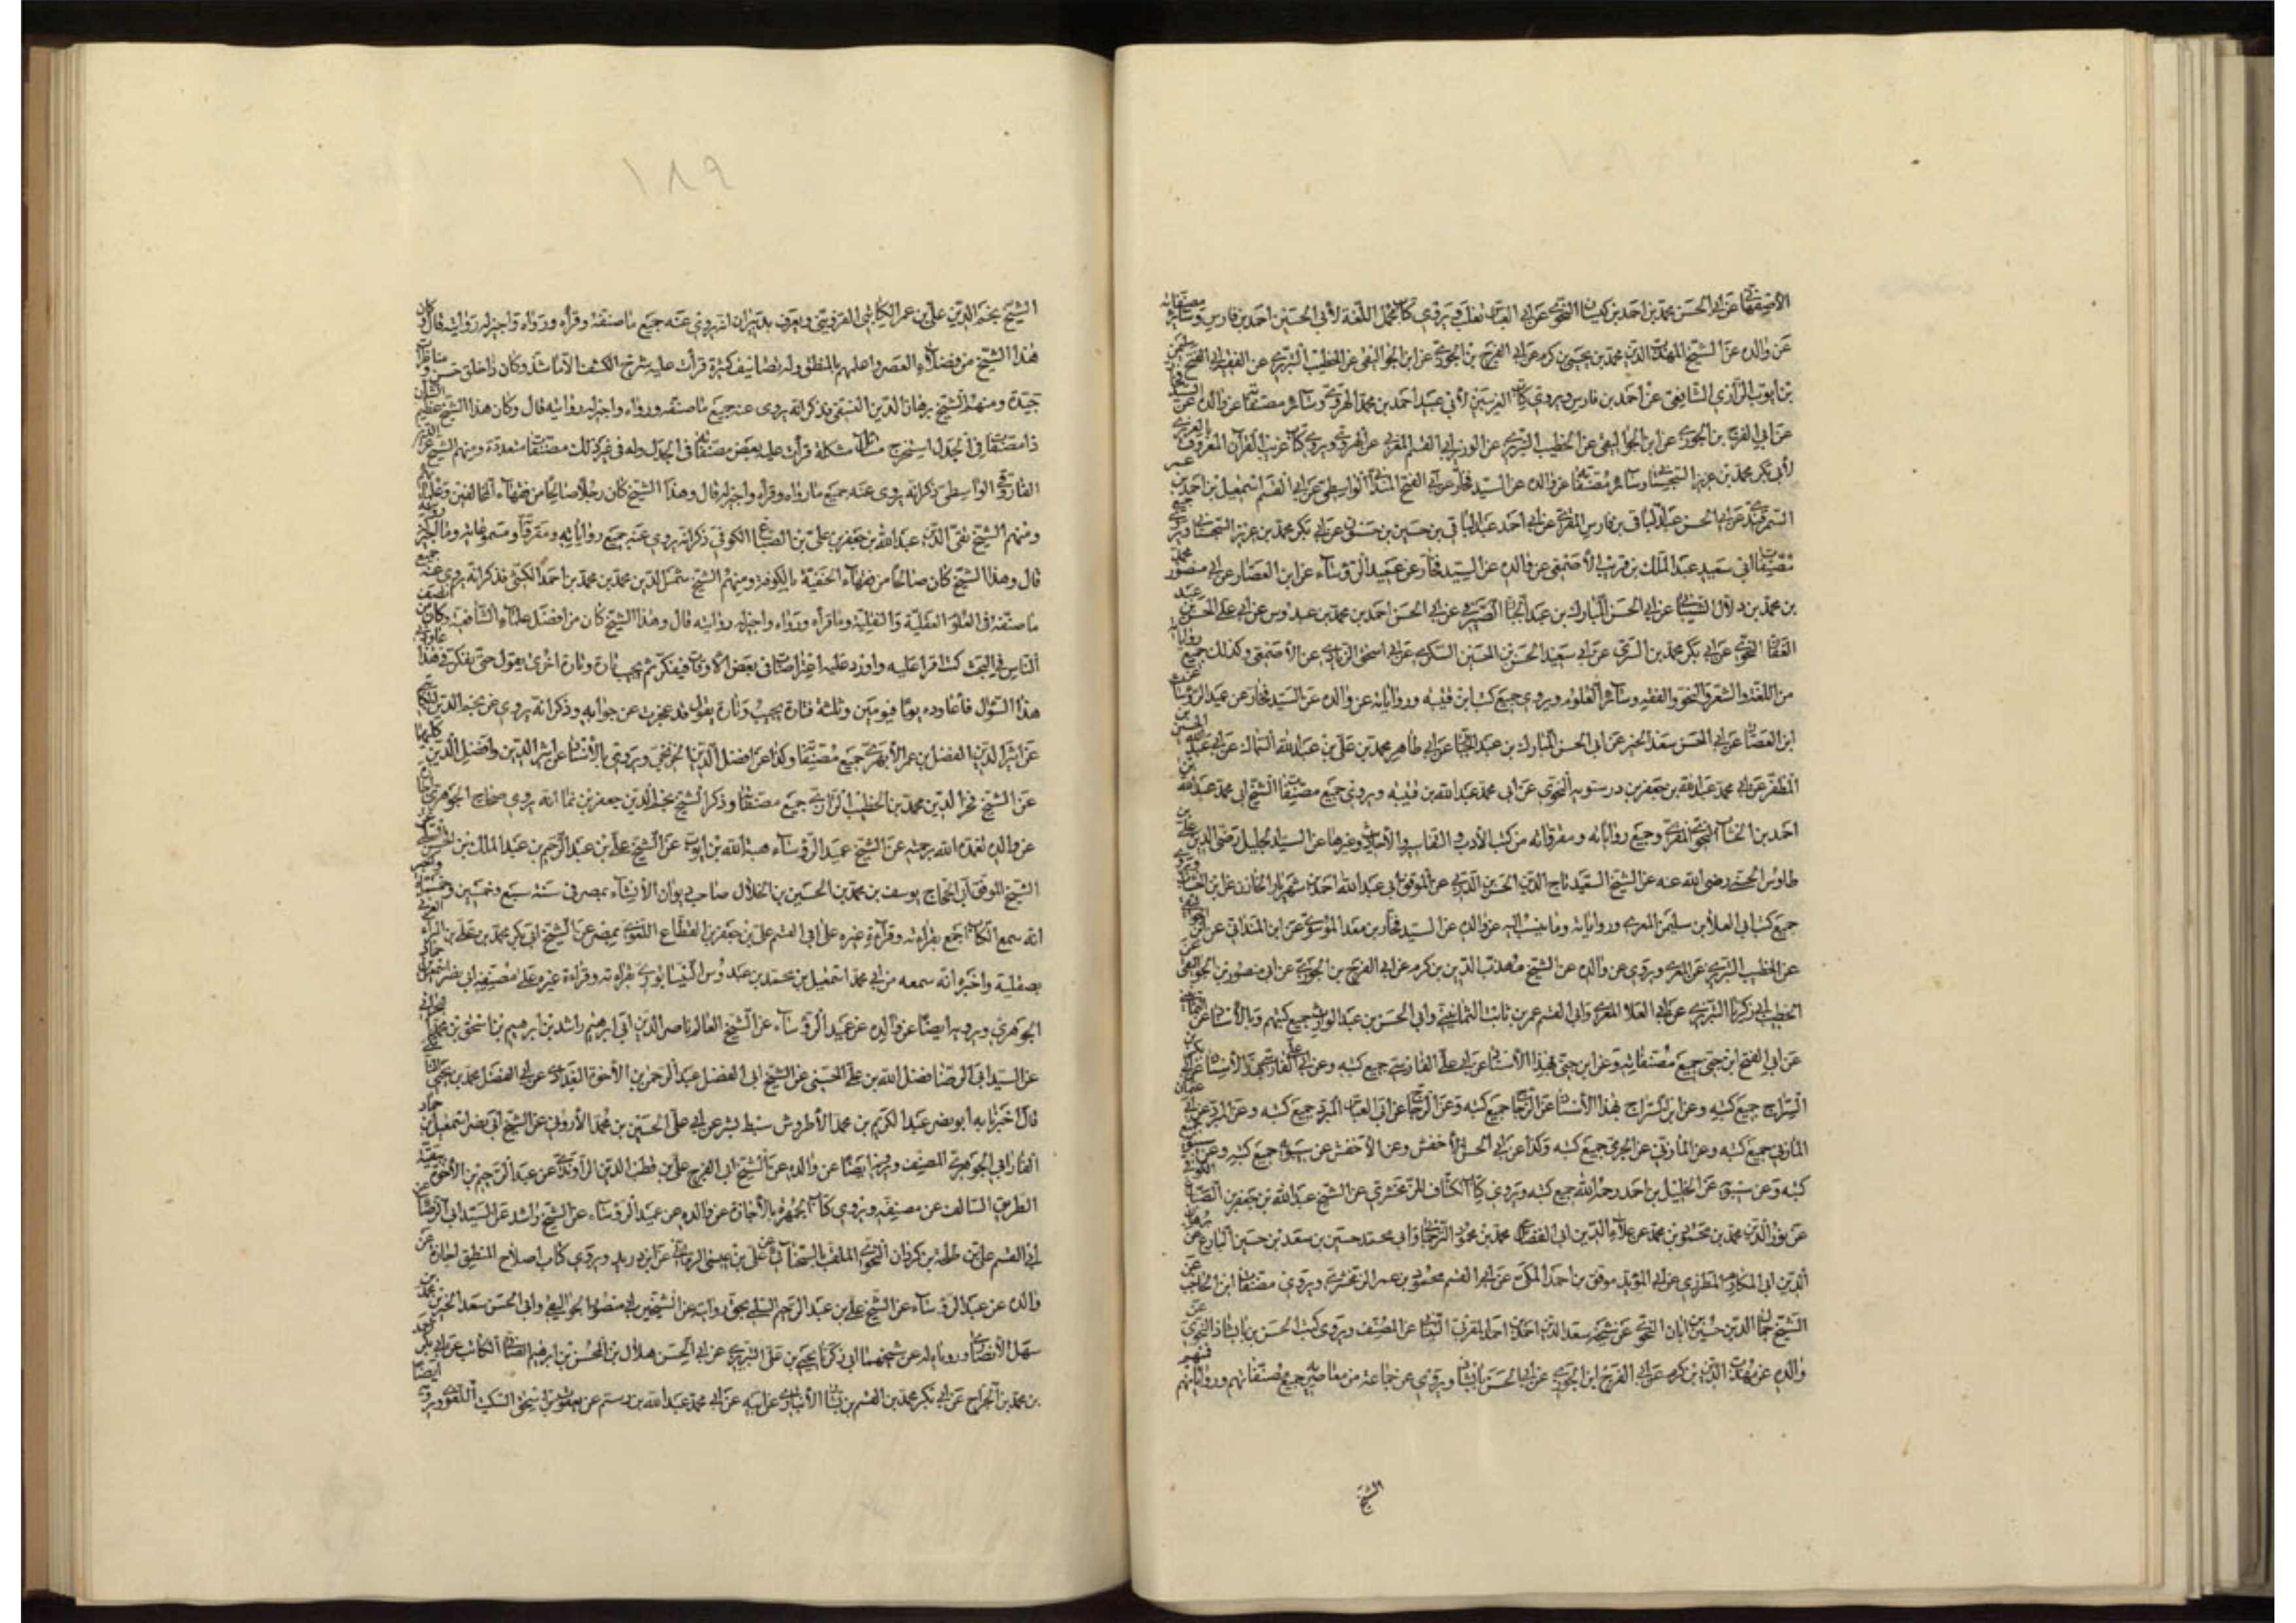 الأصفهاني عن أبي الحسن محمد بن احمد بن كيسان النحوي عن أبي العباس ثعلب ويروي كتاب مجمل اللغة لأبي الحسين احمد بن فارس وسائر مصنفاته
عن والده عن الشيخ مهذب الدين محمد بن يحيى بن كرم عن أبي الفرج بن الجوزي عن ابن الجواليقي عن الخطيب التبريزي عن الفقيه أبي الفتح سليم
بن أيوب الرازي الشافعي عن أحمد بن فارس ويروي كتاب الغريبين لأبي عبيد أحمد بن محمد الهروي وسائر مصنفاته عن والده عن
عن أبي الفرج بن الجوزي عن ابن الجواليقي عن الخطيب التبريزي عن الوزير أبي القسم المغربي عن الهروي ويروي كتاب غريب القرآن المعروف بالعزيزي
لأبي بكر محمد بن عزيز السجستاني وسائر مصنفاته عن والده عن السيد فخار عن أبي الفتح المنداي الواسطي عن أبي القسم اسمعيل بن احمد بن عمر
السمرقندي عن أبي الحسن عبد الباقي بن فارس المقري عن أبي أحمد عبد الباقي بن حسين بن حسنون عن أبي بكر محمد بن عزيز السجستاني ويروي جميع
مصنفات أبي سعيد عبد الملك بن قريب الأصمعي عن والده عن السيد فخار عن عميد الرؤساء عن ابن العصار عن أبي منصور محمد
بن محمد بن دلال الشيباني عن أبي الحسن المبارك بن عبد الجبار الصيرفي عن أبي الحسن احمد بن محمد بن عبدوس عن أبي علي الحسن بن عبد
الغفار النحوي عن أبي بكر محمد بن السري عن أبي سعيد الحسن بن الحسين السكري عن أبي اسحق الزيادي عن الأصمعي وكذلك جميع رواياته
من اللغة والشعر والنحو والفقه وسائر العلوم ويروي جميع كتب ابن قتيبه ورواياته عن والده عن السيد فخار عن عميد الرؤساء عن
ابن العصار عن أبي الحسن سعد الخير عن أبي الحسن المبارك بن عبد الجبار عن أبي طاهر محمد بن علي بن عبد الله السماك عن أبي عبد الله الحسين بن
المظفر عن أبي محمد عبد الله بن جعفر بن درستويه النحوي عن أبي محمد عبد الله بن قتيبه ويروي جميع مصنفات الشيخ أبي محمد عبد الله بن
احمد بن الخشاب النحوي المقري وجميع رواياته ومقرواته من كتب الأدب والتفاسير والأنساب وغيرها عن السيد الجليل رضي الدين علي بن
طاوس الحسني رضي الله عنه عن الشيخ السعيد تاج الدين الحسن الدربي عن الموفق أبي عبد الله احمد بن شهريار الخازن عن ابن الخشاب ويروي
جميع كتب أبي العلا بن سليمن المعري ورواياته وما ينسب اليه عن والده عن السيد فخار بن معد الموسوي عن ابن المندائي عن
عن الخطيب التبريزي عن المعري ويروي عن والده عن الشيخ مهذب الدين بن كرم عن أبي الفرج بن الجوزي عن أبي منصور بن الجواليقي عن
الخطيب أبي زكريا التبريزي عن أبي العلا المعري وأبي القسم عمر بن ثابت الثمانيني وأبي الحسن بن عبد الوارث جميع كتبهم وبالأسناد عن الثمانيني
عن أبي الفتح ابن جني جميع مصنفاته وعن ابن جني بهذا الأسناد عن أبي علي الفارسي جميع كتبه وعن أبي علي الفارسي بهذا الأسناد عن أبي بكر بن
السراج جميع كتبه وعن ابن السراج بهذا الأسناد عن الزجاج جميع كتبه وعن الزجاج عن أبي العباس المبرد جميع كتبه وعن المبرد عن أبي عثمان
المازني جميع كتبه وعن المازني عن الجرمي جميع كتبه وكذا عن أبي الحسن الأخفش وعن الأخفش عن سيبويه جميع كتبه وعن سيبويه جميع
كتبه وعن سيبويه عن الخليل بن احمد رحمه الله جميع كتبه ويروي كتاب الكشاف للزمخشري عن الشيخ عبد الله بن جعفر بن الصباغ الكوفي
عن نور الدين محمد بن محمود بن محمد عن علاء الدين أبي الفضل محمد بن محمود الترجماني وأبي محمد حسين بن سعد بن حسين البارع عن برهان
الدين أبي المكارم المطرزي عن أبي المؤيد موفق بن احمد المكي عن أبي القسم محمود بن عمر الزمخشري ويروي مصنفات ابن الحاجب عن
الشيخ جمال الدين حسين بن أبان النحوي عن شيخه سعد الدين احمد بن احمد المغربي النسابي عن المصنف ويروي كتب الحسن بن بابشاذ النحوي عن
والده عن مهذب الدين بن كرم عن أبي الفرج ابن الجوزي عن أبي الحسن بابشاذ ويروي عن جماعة من معاصريه جميع مصنفاتهم ورواياتهم فمنهم
الشيخ
١٨٩
الشيخ نجم الدين علي بن عمر الكاتبي القزويني ويعرف بدبيران انه يروي عنه جميع ما صنفه وقرأه ورواه واجيز له روايته قال كان
هذا الشيخ من فضلاء العصر واعلمهم بالمنطق وله تصانيف كثيرة قرأت عليه شرح الكشف الا ما شذ وكان ذا خلق حسن و مناظرات
جيدة ومنهم الشيخ برهان الدين النسفي فذكر انه يروي عنه جميع ما صنفه ورواه واجيز له روايته قال وكان هذا الشيخ عظيم الشان
ذا مصنفات في الجدل استخرج مسائل مشكلة قرأت عليه بعض مصنفاته في الجدل وله في غير ذلك مصنفات متعددة ومنهم الشيخ عز الدين
الفاروقي الواسطي ذكر انه يروي عنه جميع ما رواه وقرأه واجيز له قال وهذا الشيخ كان رجلا صالحا من فقهاء المخالفين وعلمائهم
ومنهم الشيخ تقي الدين عبد الله بن جعفر بن علي بن الصباغ الكوفي ذكر انه يروي عنه جميع رواياته ومقرواته ومسموعاته وما اجيز روايته
قال وهذا الشيخ كان صالحا من فقهاء الحنفية بالكوفة ومنهم الشيخ شمس الدين محمد بن محمد بن احمد الكيشي فذكر انه يروي عنه جميع
ما صنفه في العلوم العقلية والنقلية وما قرأه ورواه واجيز له روايته قال وهذا الشيخ كان من افضل علماء الشافعية وكان من انصف
الناس في البحث كنت اقرا عليه واورد عليه اعتراضات في بعض الاوقات فيفكر ثم يجيب تارة وتارة اخرى يقول حتى نفكر في هذا عاودني
هذا السؤال فأعاوده يوما فيومين وثلثة فتارة يجيب وتارة يقول قد عجزت عن جوابه وذكر انه يروي عن نجم الدين الكاتبي
عن اثير الدين الفضل بن عمر الأبهري جميع مصنفاته وكذا عن افضل الدين الخونجي ويروي بالأسناد عن اثير الدين وافضل الدين كليهما
عن الشيخ فخر الدين محمد بن الخطيب الرازي جميع مصنفاته وذكر الشيخ نجم الدين جعفر بن نما انه يروي صحاح الجوهري
عن والده تغمده الله برحمته عن الشيخ عميد الرؤساء هبة الله بن ايوب عن الشيخ علي بن عبد الرحيم بن عبد الملك بن
الشيخ الموفق أبي الحجاج يوسف بن محمد بن الحسين بن الخلال صاحب ديوان الأنشاء بمصر في سنة سبع وخمسين وخمسمائة
انه سمع الكتاب اجمع بقراءته وقراءة غيره على أبي القسم علي بن جعفر بن القطاع اللغوي بمصر عن الشيخ أبي بكر محمد بن علي بن البر
بصقلية واخبره انه سمعه من أبي محمد اسمعيل بن محمد بن عبدوس النيسابوري بقراءته وقراءة غيره على مصنفه أبي نصر اسمعيل بن حماد
الجوهري ويرويه ايضا عن والده عن عميد الرؤساء عن الشيخ العالم ناصر الدين أبي ابرهيم راشد بن ابرهيم بن اسحق بن محمد البحراني
عن السيد أبي الرضا فضل الله بن علي الحسني عن الشيخ أبي الفضل عبد الرحمن بن الأخوة البغدادي عن أبي الفضل محمد بن يحيى
قال اخبرنا به أبو نصر عبد الكريم بن محمد الأطروش سبط بشر عن أبي علي الحسين بن محمد عن الشيخ أبي نصر اسمعيل بن حماد
الفارابي الجوهري المصنف ويرويه ايضا عن والده عن الشيخ أبي الفرج علي بن قطب الدين الراوندي عن عبد الرحيم بن الأخوة
الطريق السالف عن مصنفه ويروي كتاب الجمهرة بالأجازة عن والده عن عميد الرؤساء عن الشيخ راشد عن السيد أبي الرضا عن
أبي القسم علي بن طلحة بن كردان النحوي عن علي بن عيسى الرماني عن ابن دريد ويروي كتاب اصلاح المنطق اجازة عن
والده عن عميد الرؤساء عن الشيخ علي بن عبد الرحيم السلمي بحق روايته عن الشيخين أبي منصور الجواليقي وأبي الحسن سعد الخير بن محمد بن
سهل الأنصاري وروياه له عن شيخهما أبي زكريا يحيى بن علي التبريزي عن أبي الحسن هلال بن المحسن بن ابرهيم الصابي الكاتب عن أبي بكر احمد
بن محمد بن الجراح عن أبي بكر محمد بن القسم بن بشار الأنباري عن ابيه عن أبي محمد عبد الله بن رستم عن يعقوب بن اسحق السكيت اللغوي ويرويه ايضا